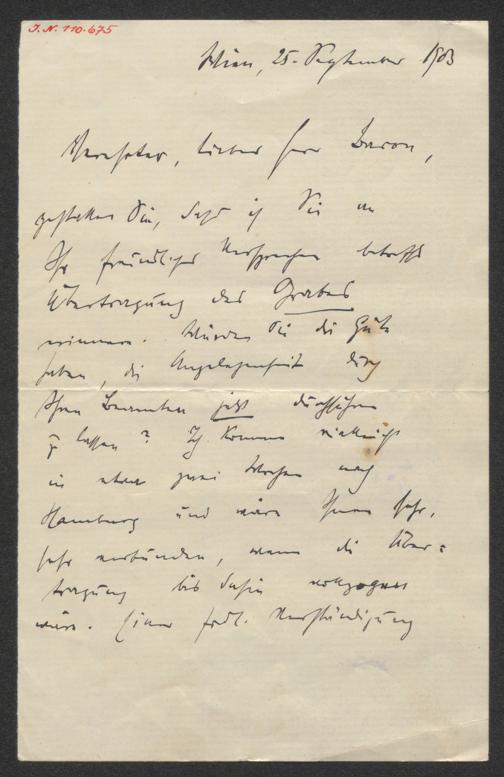 I.N. 110.675
Wien, 25. September 1903
Verehrter, lieber Herr Baron,
gestatten Sie, daß ich Sie an
Ihr freundliches Versprechen betreffs
Übertragung des Grabes
erinnere. Würden Sie die Güte
haben, die Angelegenheit durch
Ihren Beamten jetzt durchführen
zu lassen? Ich komme vielleicht
in etwa zwei Wochen nach
Hamburg und wäre Ihnen sehr,
sehr verbunden, wenn die Über=
tragung bis dahin vollzogen
wäre. Einer frdl. Verständigung